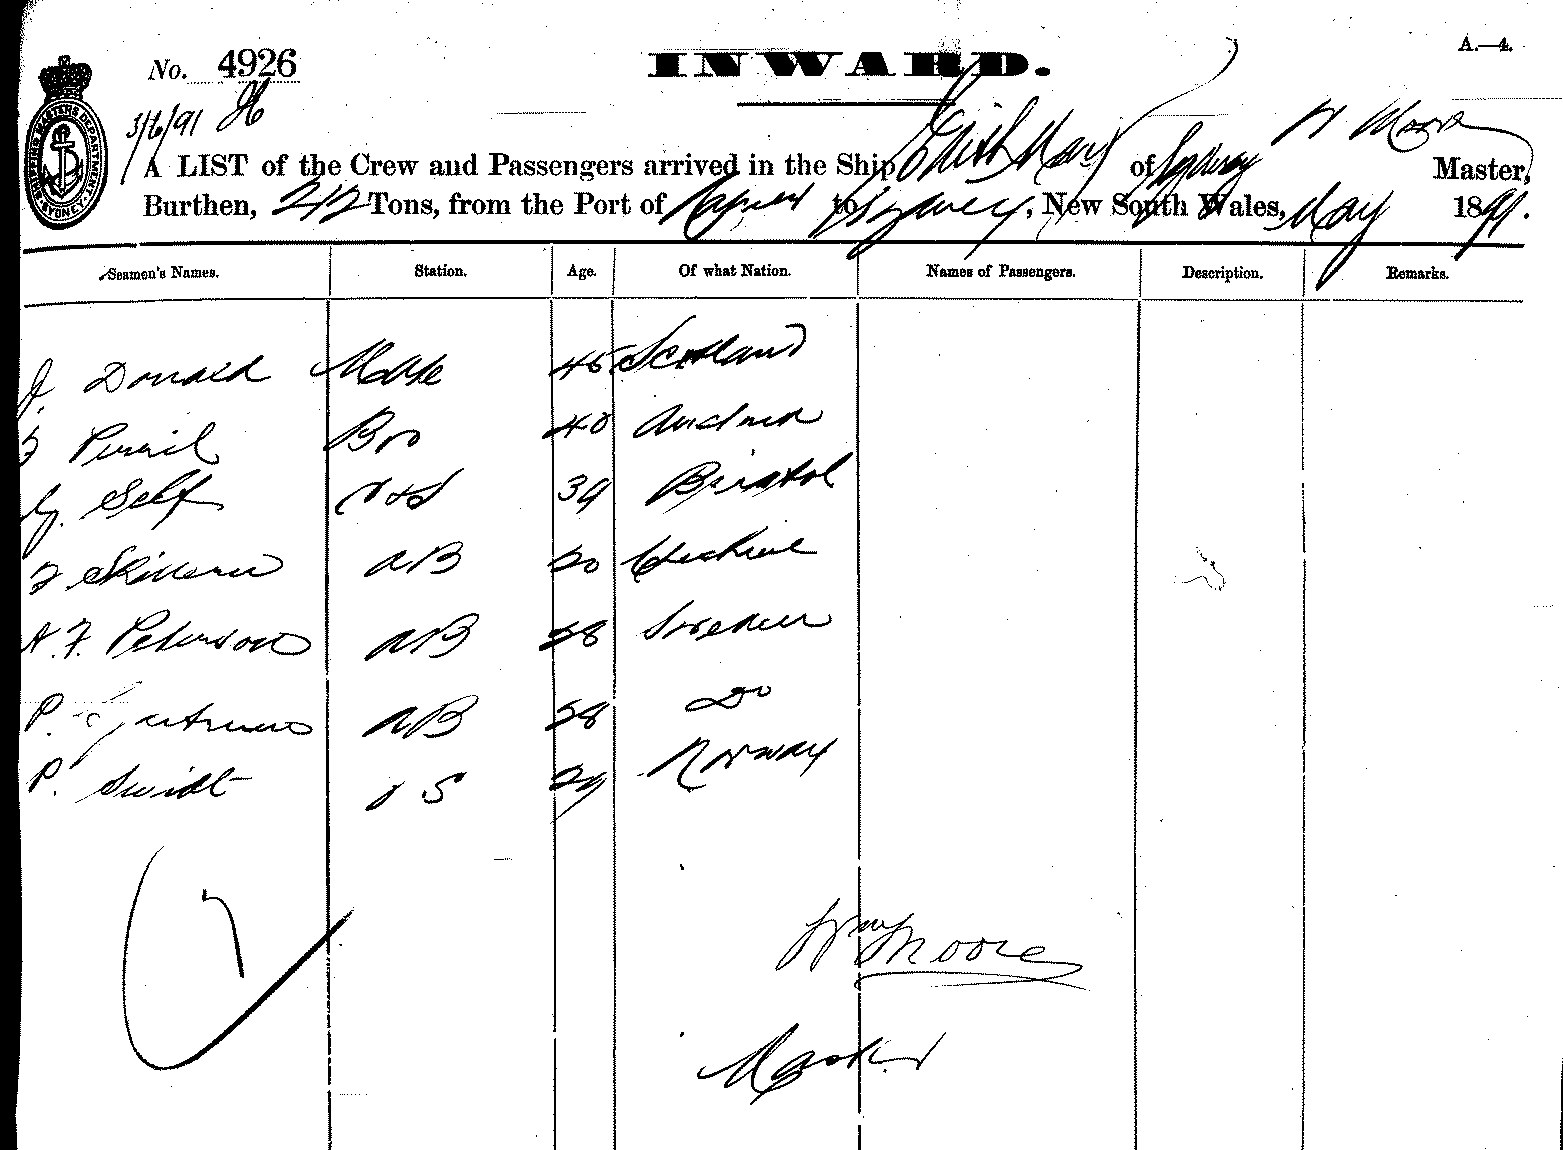 A.—4.
No. 4926
INWARD.
3/6/91
SHIPPING MASTERS DEPARTMENT SYDNEY.
A LIST of the Crew and Passengers arrived in the Ship Edith May of Sydney W Moore Master,
Burthen, 212 Tons, from the Port of Napier to Sydney, New South Wales, May 1891.
Seamen's Names. Station. Age. Of what Nation. Names of Passengers. Description. Remarks.
J. Donald Mate 45 Scotland
40
G. Self 39 Bristol
AB 20
A. F. Peterson AB 28 Sweden
P. AB 28 Do
P. OS 29 Norway
7
Wm Moore
Master